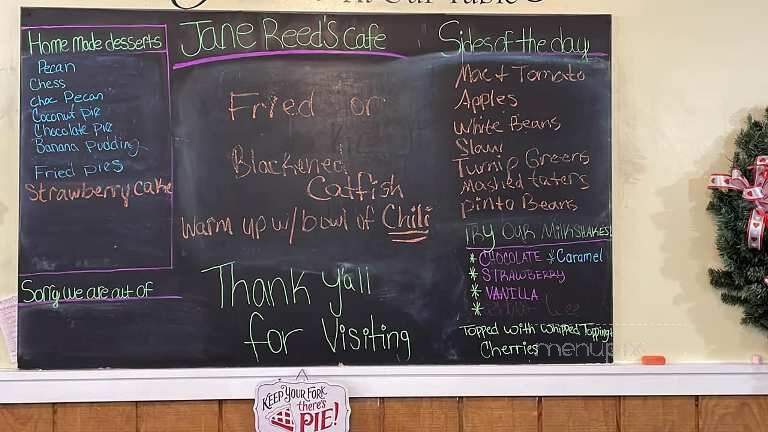 Home Made desserts
Pecan
Chess
choc Pecan
Coconut Pie
Chocolate Pie
Banana Pudding
Fried pies
Strawberry cake
Sorry we are out of
Jane Reed's Cafe
Fried or
Blackened
Catfish
Warm up w/ bowl of Chili
Thank Y'all
for Visiting
Sides of the day
Mac & Tomato
Apples
White Beans
Slaw
Turnip Greens
Mashed taters
Pinto Beans
Try Our Milkshakes!
* Chocolate * Caramel
* Strawberry
* Vanilla
*
Topped with Whipped Topping
Cherries
menupix
Keep Your Fork
there's
PIE!